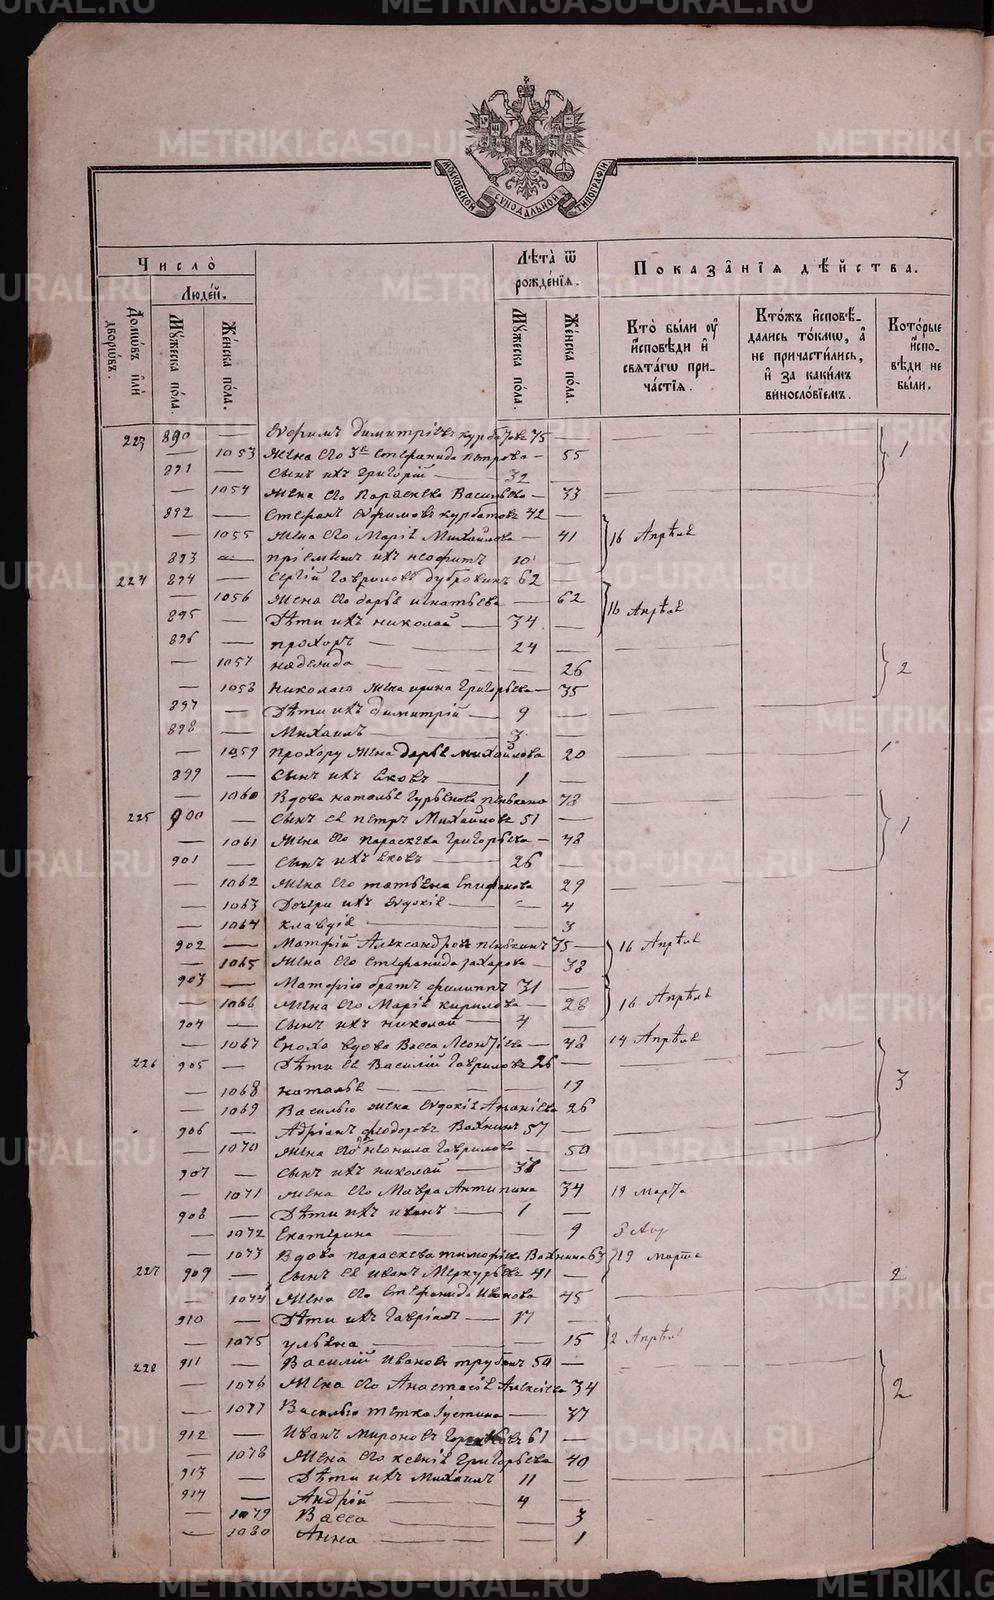 METRIKI.GASO-URAL.RU
МОСКОВСКОЙ СѴНОДАЛЬНОЙ ТИПОГРАФІИ
Число̀
Людей.
Домѡвъ и҆лѝ дворѡвъ.
Мꙋжеска по́ла.
Же́нска по́ла.
Лѣта̀ ѿ рожде́нїѧ.
Мꙋжеска по́ла.
Же́нска по́ла.
Показа̑нїѧ дѣ́йства.
Кто̀ бы́ли ᲂу҆ и҆сповѣди и҆ свѧта́гѡ при-ча́стїѧ.
Кто́жъ и҆сповѣ-дались то́кмѡ, а҆ не причасти́лись, и҆ за каки́мъ винослові́емъ.
Кото́рые и҆спо-вѣди не бы́ли.
223 890 — Ефимъ Димитріевъ Курбатовъ 75 —
— 1053 Жена его 3я Стефанида Петрова — 55 1
891 — Сынъ ихъ Григорій — 32
— 1054 Жена его Параскева Васильева — 33
892 — Стефанъ Ефимовъ Курбатовъ 42 —
— 1055 Жена его Марія Михайлова — 41 16 Апрѣля
893 — Пріемышъ ихъ Неофитъ 10
224 894 — Сергій Гавриловъ Дубровинъ 62 —
— 1056 Жена его Дарья Игнатьева — 62 16 Апрѣля
895 — Дѣти ихъ Николай — 34 —
896 — Прохоръ — 24 —
— 1057 Надежда — 26 2
— 1058 Николаю жена Ирина Григорьева — 35
897 — Дѣти ихъ Димитрій — 9 —
898 — Михаилъ — 3 —
— 1059 Прохору жена Дарья Михайлова 20
899 — Сынъ ихъ Яковъ — 1 —
— 1060 Вдова Наталья Гурьянова Пенькина 78
225 900 — Сынъ ея Петръ Михайловъ 51 — 1
— 1061 Жена его Параскева Григорьева — 48
901 — Сынъ ихъ Яковъ 26 —
— 1062 Жена его Татьяна Епифанова 29
— 1063 Дочери ихъ Евдокія — 4
— 1064 Клавдія — 3
902 — Матфій Александровъ Пенькинъ 35 — 16 Апрѣля
— 1065 Жена его Стефанида Захарова — 38
903 — Матфію братъ Филиппъ 31 —
— 1066 Жена его Марія Кирилова — 28 16 Апрѣля
904 — Сынъ ихъ Николай — 4 —
— 1067 Сноха вдова Васса Леонтіева — 48 14 Апрѣля
226 905 — Дѣти ея Василій Гавриловъ 26 —
— 1068 Наталья — 19 3
— 1069 Василью жена Евдокія Ананіева 26
906 — Адріанъ Феодоровъ Вахнинъ 57 —
— 1070 Жена его Неонила Гаврилова — 50
907 — Сынъ ихъ Николай — 31 —
— 1071 Жена его Мавра Антипина 34 19 Марта
908 — Дѣти ихъ Иванъ — 1 —
— 1072 Екатерина — 9
— 1073 Вдова Параскева Тимофѣева Вахнина 63 19 Марта
227 909 — Сынъ ея Иванъ Меркурьевъ 41 — 2
— 1074 Жена его Стефанида Иванова 45
910 — Дѣти ихъ Гавріилъ — 17 —
— 1075 Ульяна — 15 2 Апрѣля
228 911 — Василій Ивановъ 50 —
— 1076 Жена его Анастасія Алексіева 34 2
— 1077 Василью тетка Іустина — 37
912 — Иванъ Мироновъ 61 —
— 1078 Жена его Ксенія Григорьева 40
913 — Дѣти ихъ Михаилъ 11 —
914 — Андрій — 4 —
— 1079 Васса — 3
— 1080 Анна — 1